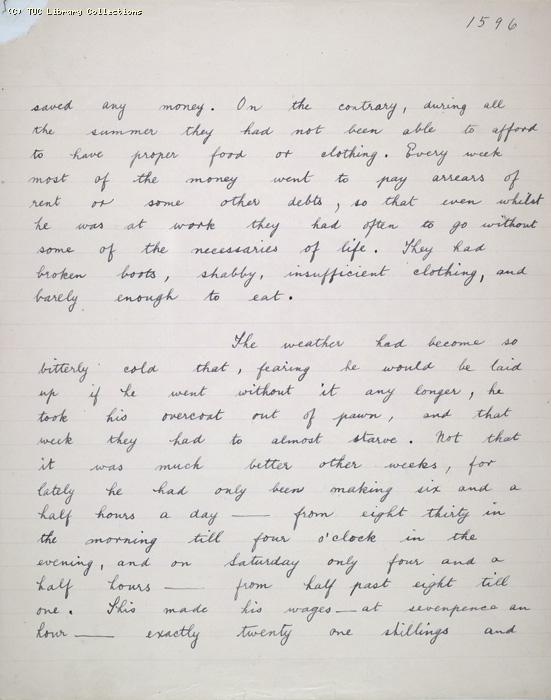 (C) TUC Library Collections
1596
saved any money. On the contrary, during all
the summer they had not been able to afford
to have proper food or clothing. Every week
most of the money went to pay arrears of
rent or some other debts, so that even whilst
he was at work they had often to go without
some of the necessaries of life. They had
broken boots, shabby, insufficient clothing, and
barely enough to eat.
The weather had become so
bitterly cold that, fearing he would be laid
up if he went without it any longer, he
took his overcoat out of pawn, and that
week they had to almost starve. Not that
it was much better other weeks, for
lately he had only been making six and a
half hours a day — from eight thirty in
the morning till four o'clock in the
evening, and on Saturday only four and a
half hours — from half past eight till
one. This made his wages — at sevenpence an
hour — exactly twenty one shillings and